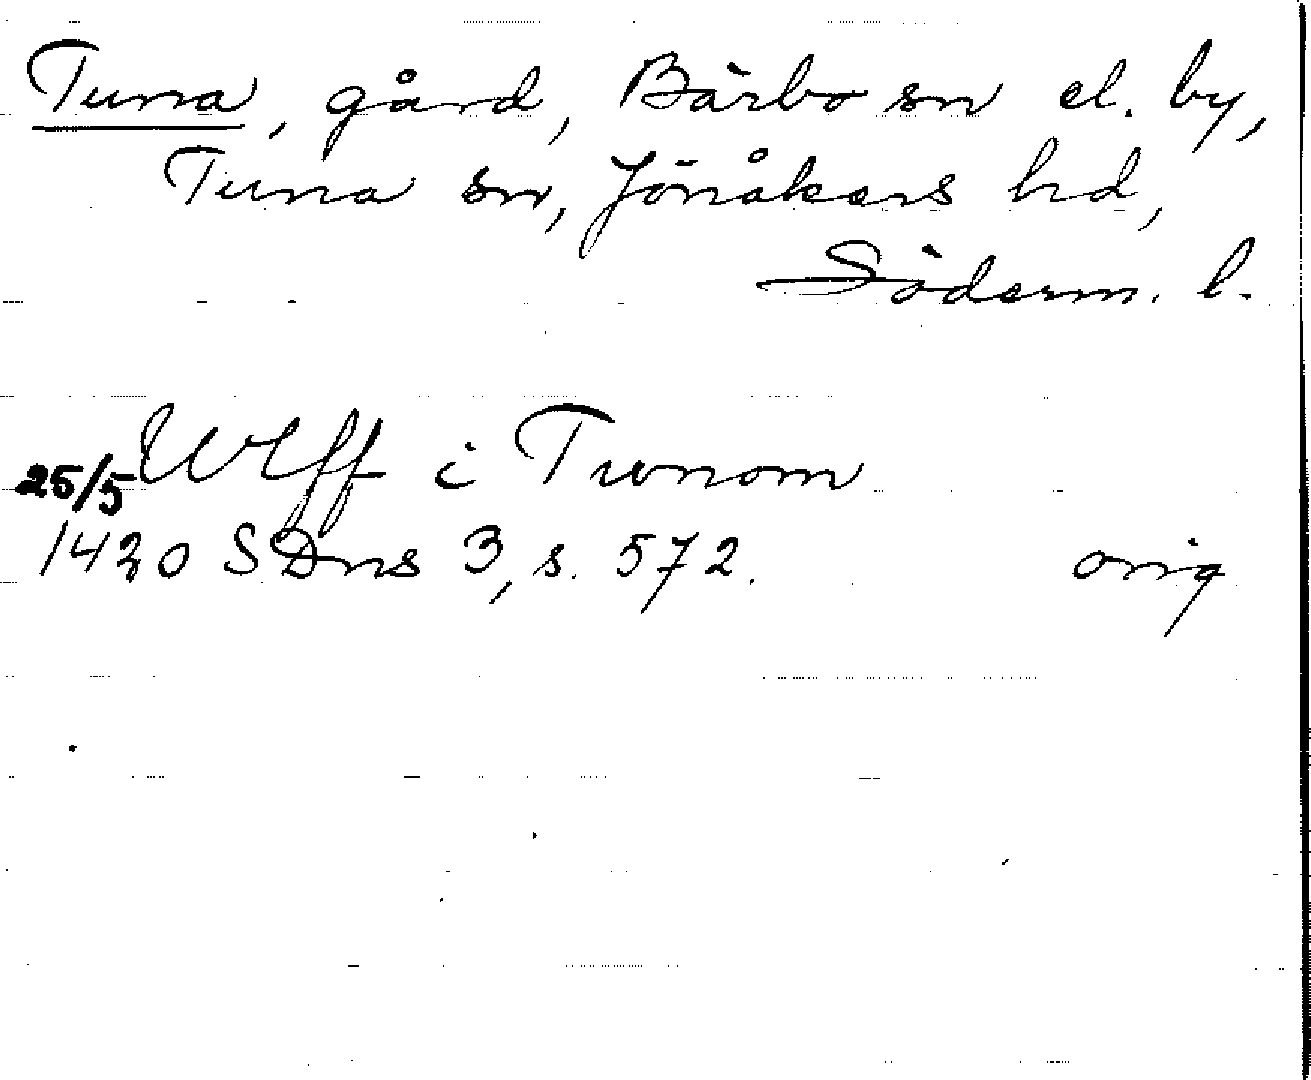 Tuna, gård, Bärbo sn el. by,
Tuna sn, Jönåkers hd,
Söderm. l.
Wlff i Twnom
25/5
1420 SDns 3, s. 572. orig